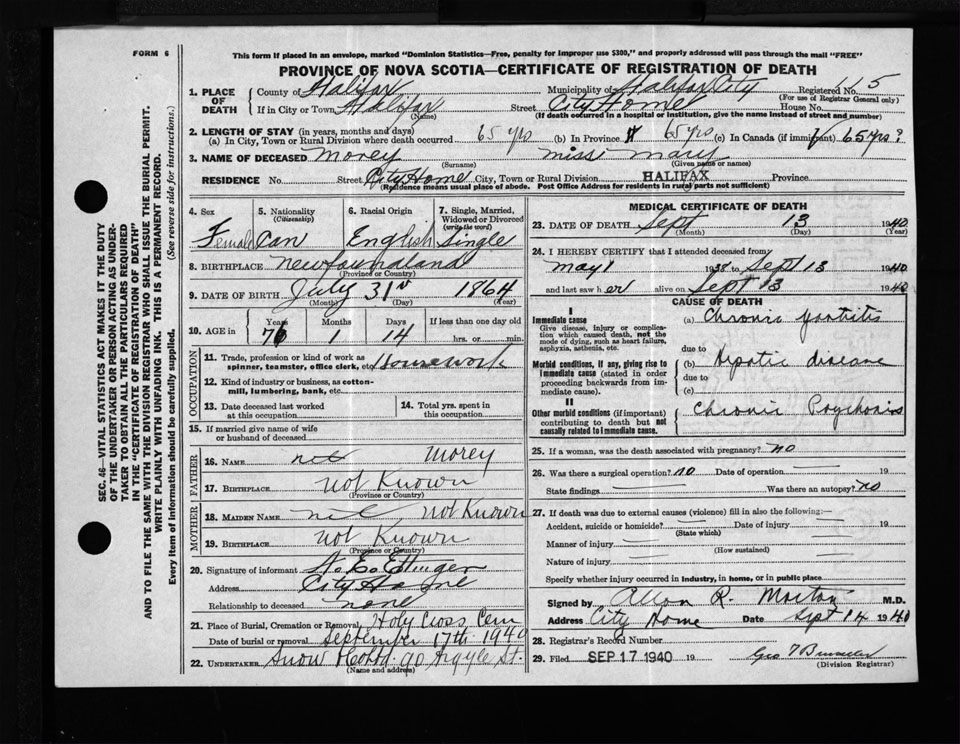 FORM 6
This form if placed in an envelope, marked "Dominion Statistics—Free, penalty for improper use $300," and properly addressed will pass through the mail "FREE"
PROVINCE OF NOVA SCOTIA—CERTIFICATE OF REGISTRATION OF DEATH
1. PLACE OF DEATH County of Halifax Municipality of Halifax City Registered No. 5
(For use of Registrar General only)
If in City or Town Halifax Street City Home House No.
(Name) (If death occurred in a hospital or institution, give the name instead of street and number)
2. LENGTH OF STAY (in years, months and days)
(a) In City, Town or Rural Division where death occurred 65 yrs (b) In Province 65 yrs (c) In Canada (if immigrant) 65 yrs?
3. NAME OF DECEASED Morey Miss Mary
(Surname) (Given name or names)
RESIDENCE No. Street City Home City, Town or Rural Division HALIFAX Province
(Residence means usual place of abode. Post Office Address for residents in rural parts not sufficient)
4. Sex Female
5. Nationality (Citizenship) Can
6. Racial Origin English
7. Single, Married, Widowed or Divorced (write the word) Single
8. BIRTHPLACE Newfoundland
(Province or Country)
9. DATE OF BIRTH July 31st 1864
(Month) (Day) (Year)
10. AGE in Years 76 Months 1 Days 14 If less than one day old hrs. or min.
OCCUPATION
11. Trade, profession or kind of work as spinner, teamster, office clerk, etc. Housework
12. Kind of industry or business, as cotton-mill, lumbering, bank, etc.
13. Date deceased last worked at this occupation
14. Total yrs. spent in this occupation
15. If married give name of wife or husband of deceased
FATHER
16. NAME Morey
17. BIRTHPLACE Not Known
(Province or Country)
MOTHER
18. MAIDEN NAME Not Known
19. BIRTHPLACE Not Known
(Province or Country)
20. Signature of informant
Address City Home
Relationship to deceased none
21. Place of Burial, Cremation or Removal Holy Cross Cem
Date of burial or removal September 17th 1940
22. UNDERTAKER Snow 90 Argyle St.
(Name and address)
MEDICAL CERTIFICATE OF DEATH
23. DATE OF DEATH Sept 13 1940
(Month) (Day) (Year)
24. I HEREBY CERTIFY that I attended deceased from
May 1 1938 to Sept 13 1940
and last saw her alive on Sept 13 1940
CAUSE OF DEATH
I
Immediate cause
Give disease, injury or complication which caused death, not the mode of dying, such as heart failure, asphyxia, asthenia, etc.
(a) Chronic
due to
Morbid conditions, if any, giving rise to immediate cause (stated in order proceeding backwards from immediate cause).
(b) disease
due to
(c)
II
Other morbid conditions (if important) contributing to death but not causally related to immediate cause.
Chronic Psychosis
25. If a woman, was the death associated with pregnancy? no
26. Was there a surgical operation? no Date of operation 19
State findings Was there an autopsy? no
27. If death was due to external causes (violence) fill in also the following:—
Accident, suicide or homicide? Date of injury 19
(State which)
Manner of injury
(How sustained)
Nature of injury
Specify whether injury occurred in industry, in home, or in public place
Signed by Allan R. Morton M.D.
Address City Home Date Sept 14 1940
28. Registrar's Record Number
29. Filed SEP 17 1940 19
(Division Registrar)
SEC. 46—VITAL STATISTICS ACT MAKES IT THE DUTY OF THE UNDERTAKER OR PERSON ACTING AS UNDERTAKER TO OBTAIN ALL THE PARTICULARS REQUIRED IN THE "CERTIFICATE OF REGISTRATION OF DEATH" AND TO FILE THE SAME WITH THE DIVISION REGISTRAR WHO SHALL ISSUE THE BURIAL PERMIT.
WRITE PLAINLY WITH UNFADING INK. THIS IS A PERMANENT RECORD.
Every item of information should be carefully supplied. (See reverse side for instructions.)